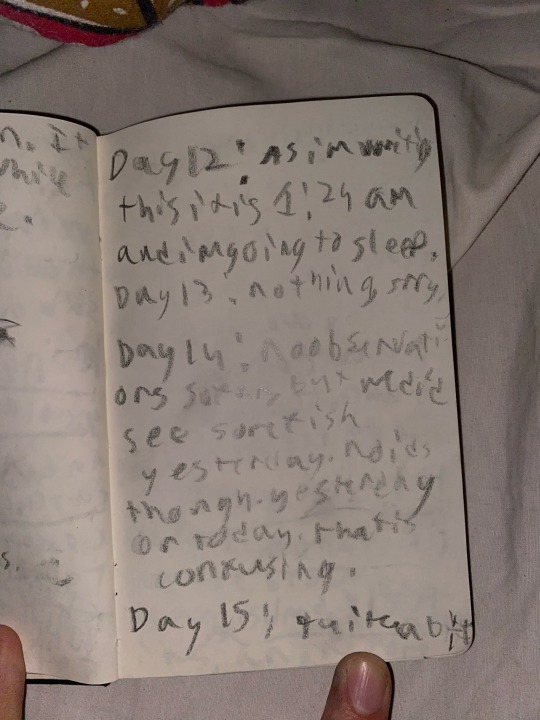 n. It
while
e.
s.
Day 12: As im writing
this it is 1:24 am
and im going to sleep.
Day 13. nothing, srry.
Day 14: no observati
ons so far, but we did
see
yesterday. no ids
though. yesterday
or today. that is
confusing.
Day 15: quite a bit